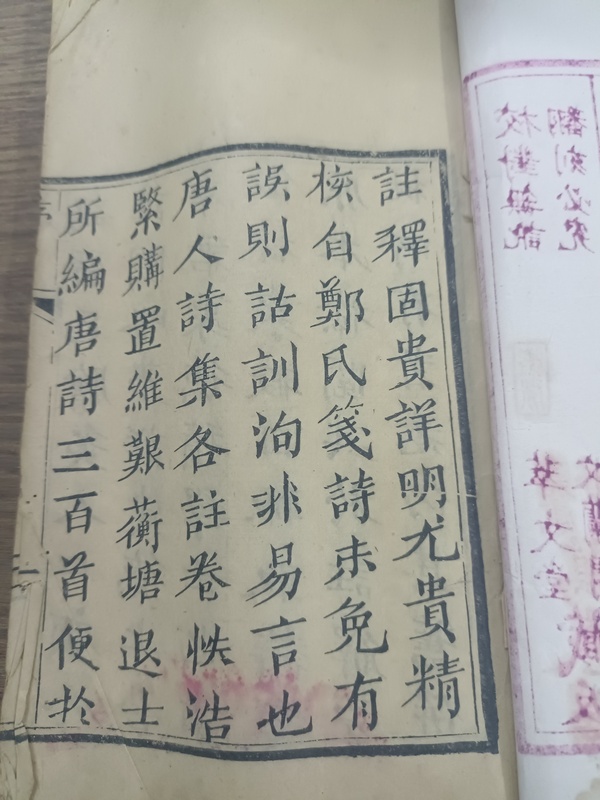 翻刻必究
校對無訛
文堂
註釋固貴詳明尤貴精
核自鄭氏箋詩未免有
誤則詁訓洵非易言也
唐人詩集各註卷帙浩
繁購置維艱蘅塘退士
所編唐詩三百首便於